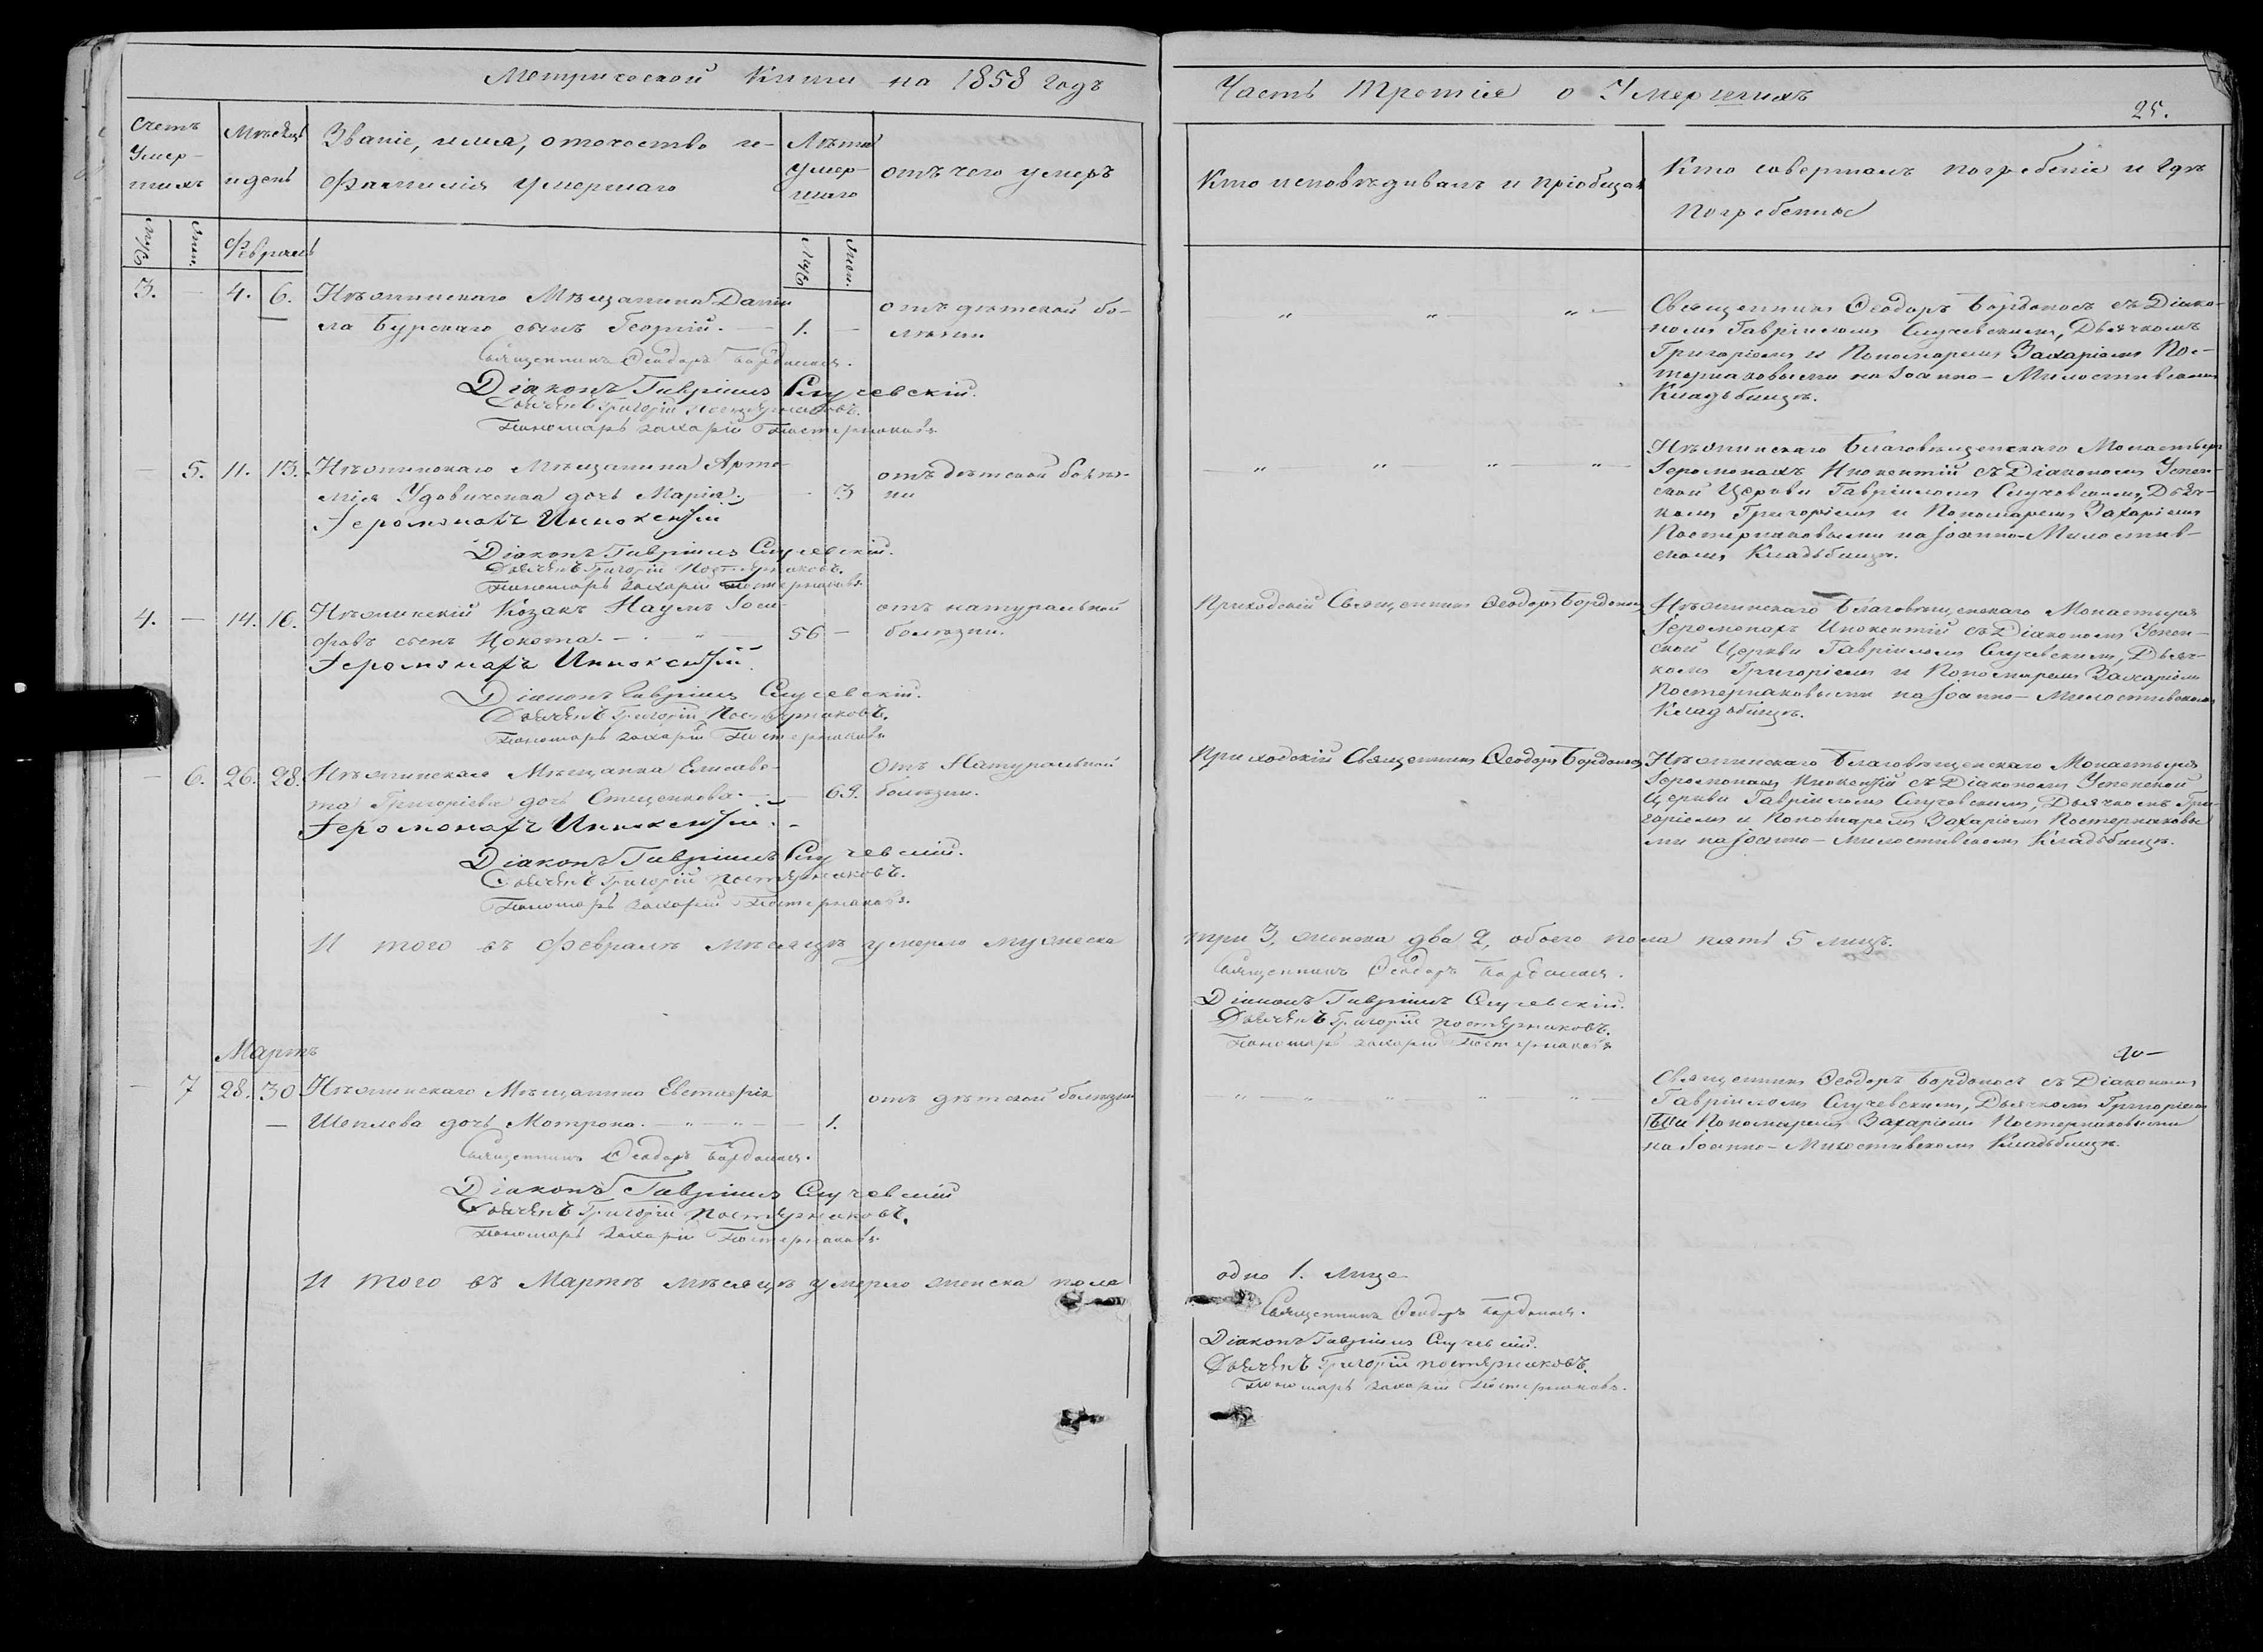 Метрической Книги на 1858 годъ
Часть Третія о Умершихъ
25.
Счетъ
Умер-
шихъ
Мѣсяцъ
и день
Званіе, имя, отечество и
Фамилія умершаго
Лѣта
умер-
шаго
отъ чего умеръ
Кто исповѣдивалъ и пріобщал
Кто совершалъ погребеніе и гдѣ
погребенны
Муж.
Жен.
Февраль
Муж.
Жен.
3. — 4. 6. Нѣжинскаго Мѣщанина Даніи
ла Бурскаго сынъ Георгій. — 1. —
отъ дѣтской бо-
лѣзни
Священникъ Ѳеодоръ Бордоносъ.
Діаконъ Гавріилъ Случевскій.
Дьячекъ Григорій Постернаковъ.
Пономарь Захарій Постернаковъ
Священникъ Ѳеодоръ Бордоносъ съ Діако-
номъ Гавріиломъ Случевскимъ, Дьячкомъ
Григоріемъ и Пономаремъ Захаріемъ Пос-
тернаковыми на Іоанно-Милостивскомъ
Кладбищѣ.
— 5. 11. 13. Нѣжинскаго Мѣщанина Арте-
мія Удовиченка дочь Марія. — 3
отъ дѣтской болѣз-
ни
Іеромонахъ Иннокентій
Діаконъ Гавріилъ Случевскій.
Дьячекъ Григорій Постернаковъ.
Пономарь Захарій Постернаковъ
Нѣжинскаго Благовѣщенскаго Монастыря
Іеромонахъ Инокентій съ Діакономъ Успен-
ской Церкви Гавріиломъ Случевскимъ, Дьяч-
комъ Григоріемъ и Пономаремъ Захаріемъ
Постернаковыми на Іоанно-Милостив-
скомъ Кладьбищѣ.
4. — 14. 16. Нѣжинскій Козакъ Наумъ Іоси-
фовъ сынъ Цокота. — 56 —
отъ натуральной
болѣзни.
Іеромонахъ Иннокентій.
Діаконъ Гавріилъ Случевскій.
Дьячекъ Григорій Постернаковъ.
Пономарь Захарій Постернаковъ
Приходскій Священникъ Ѳеодоръ Бордонос
Нѣжинскаго Благовѣщенскаго Монастыря
Іеромонахъ Инокентій съ Діакономъ Успен-
ской Церкви Гавріиломъ Случевскимъ, Дьяч-
комъ Григоріемъ и Пономаремъ Захаріемъ
Постернаковыми на Іоанно-Милостивскомъ
Кладьбищѣ.
— 6. 26. 28. Нѣжинскаго Мѣщанка Елисаве-
та Григоріева дочь Стеценкова. — 69.
Отъ Натуральной
болѣзни.
Іеромонахъ Иннокентій.
Діаконъ Гавріилъ Случевскій.
Дьячекъ Григорій Постернаковъ.
Пономарь Захарій Постернаковъ.
Приходскій Священникъ Ѳеодоръ Бордонос
Нѣжинскаго Благовѣщенскаго Монастыря
Іеромонахъ Инокентій съ Діакономъ Успенской
Церкви Гавріиломъ Случевскимъ, Дьячкомъ Гри-
горіемъ и Пономаремъ Захаріемъ Постернаковы
ми на Іоанно-Милостивскомъ Кладьбищѣ.
И того въ Февралѣ мѣсяцѣ умерло мужеска
три 3, женска два 2, обоего пола пять 5 лицъ.
Священникъ Ѳеодоръ Бордоносъ.
Діаконъ Гавріилъ Случевскій.
Дьячекъ Григорій Постернаковъ.
Пономарь Захарій Постернаковъ
Мартъ
— 7 28. 30 Нѣжинскаго Мѣщанина Евстафія
— Шеплева дочь Мотрона. — 1.
отъ дѣтской болѣзни
Священникъ Ѳеодоръ Бордоносъ.
Діаконъ Гавріилъ Случевскій
Дьячекъ Григорій Постернаковъ.
Пономарь Захарій Постернаковъ.
Священникъ Ѳеодоръ Бордоносъ съ Діакономъ
Гавріиломъ Случевскимъ, Дьячкомъ Григоріемъ
и Пономаремъ Захаріемъ Постернаковыми
на Іоанно-Милостивскомъ Кладьбищѣ.
И того въ Мартѣ мѣсяцѣ умерло женска пола
одно 1. лице
Священникъ Ѳеодоръ Бордоносъ.
Діаконъ Гавріилъ Случевскій.
Дьячекъ Григорій Постернаковъ.
Пономарь Захарій Постернаковъ.